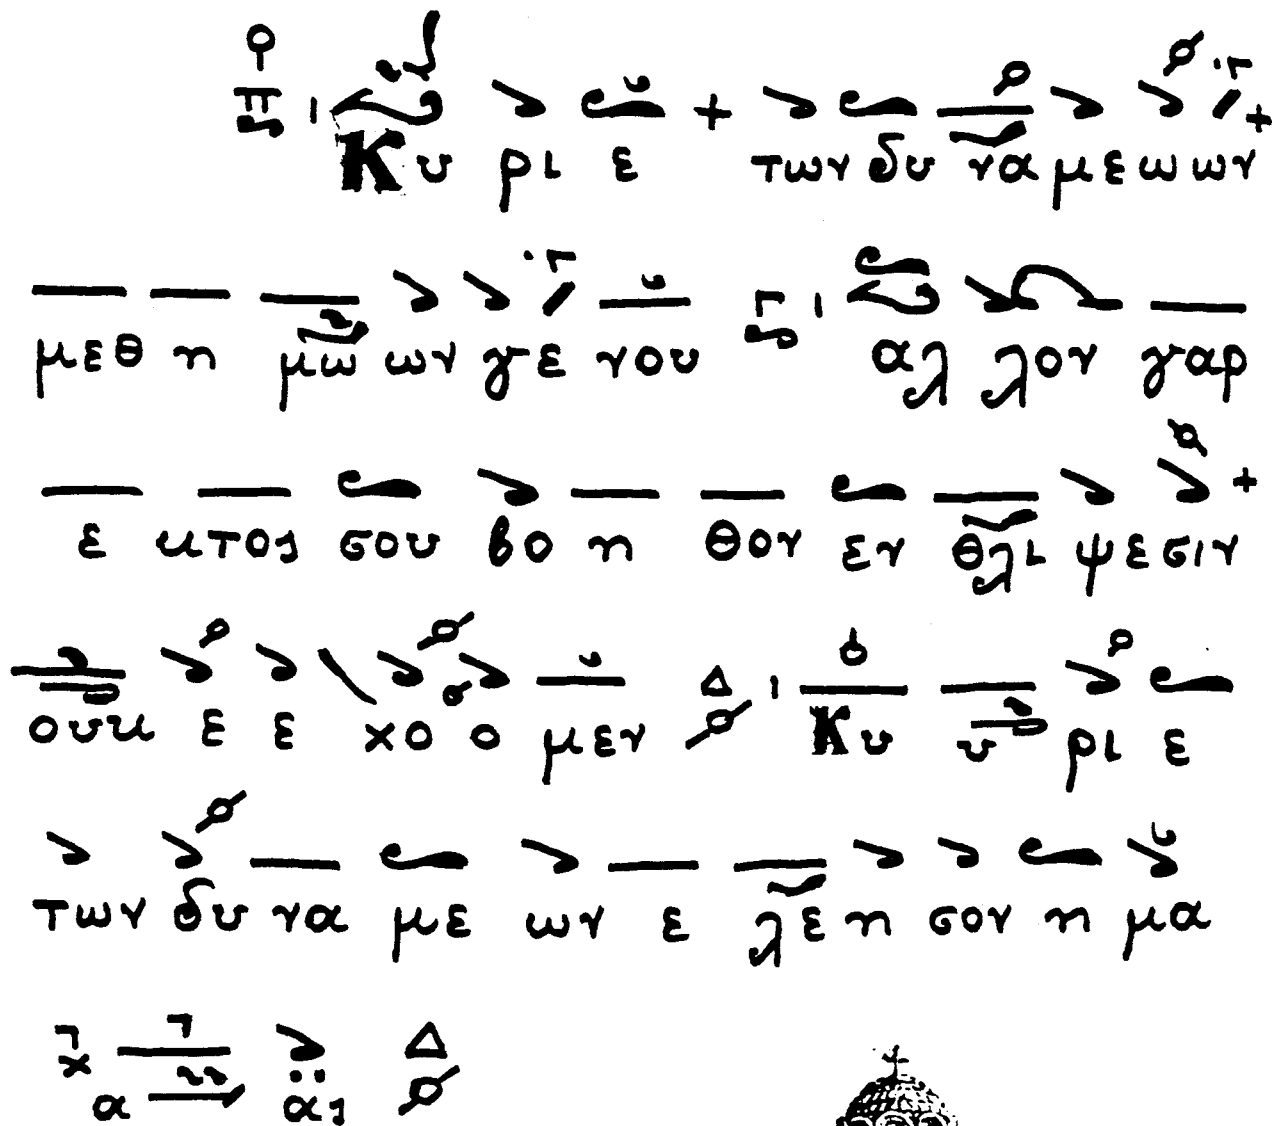 Κυ ρι ε των δυ να με ω ων
μεθ η μω ων γε νου αλ λον γαρ
ε κτος σου βο η θον εν θλι ψεσιν
ουκ ε ε χο ο μεν Κυ υ ρι ε
των δυ να με ων ε λε η σον η μα
α ας